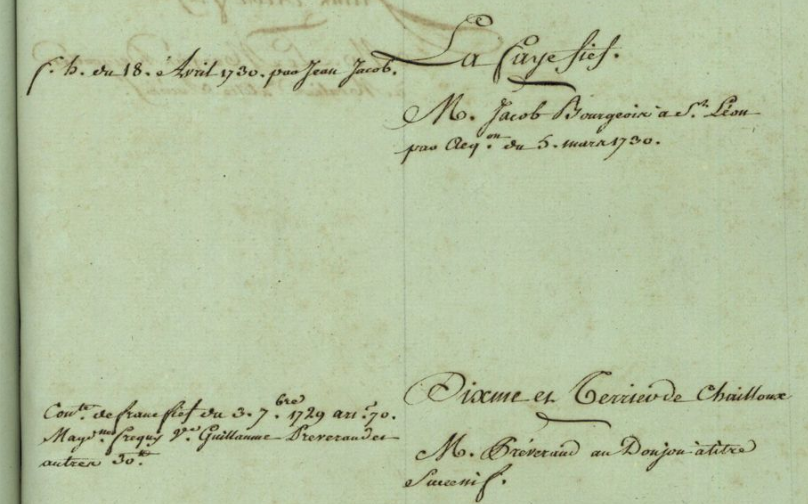 La Faye fief.
f. h. du 18. Avril 1730. par Jean Jacob.
M. Jacob Bourgeois a St. Léon
par Acq.on du 5. mars 1730.
Dixme et Terrier de Chailloux
Con.te de franc fief du 3. 7.bre 1729 art. 70.
Guillaume Preveraud et
autres 30.
M. Préveraud au Donjon à titre
Successif.